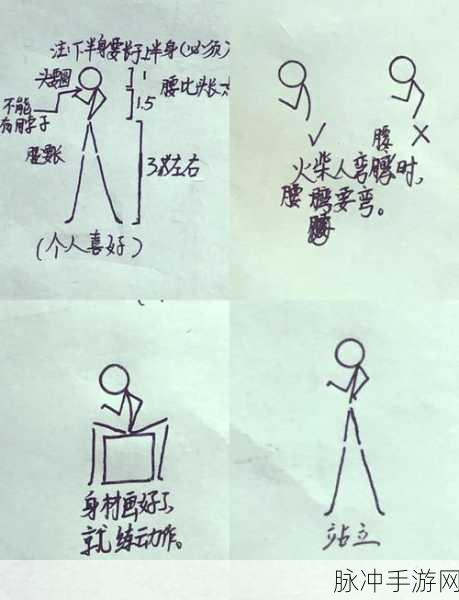 注:下半身要长于上半身(必须)
头要圆
1
腰比头长
1.5
不能
有脖子
腿要长
3左右
(个人喜好)
✓
腰
✗
火柴人弯腰时,
腰 要弯。
身材画好了
就练动作。
站立
脉冲手游网